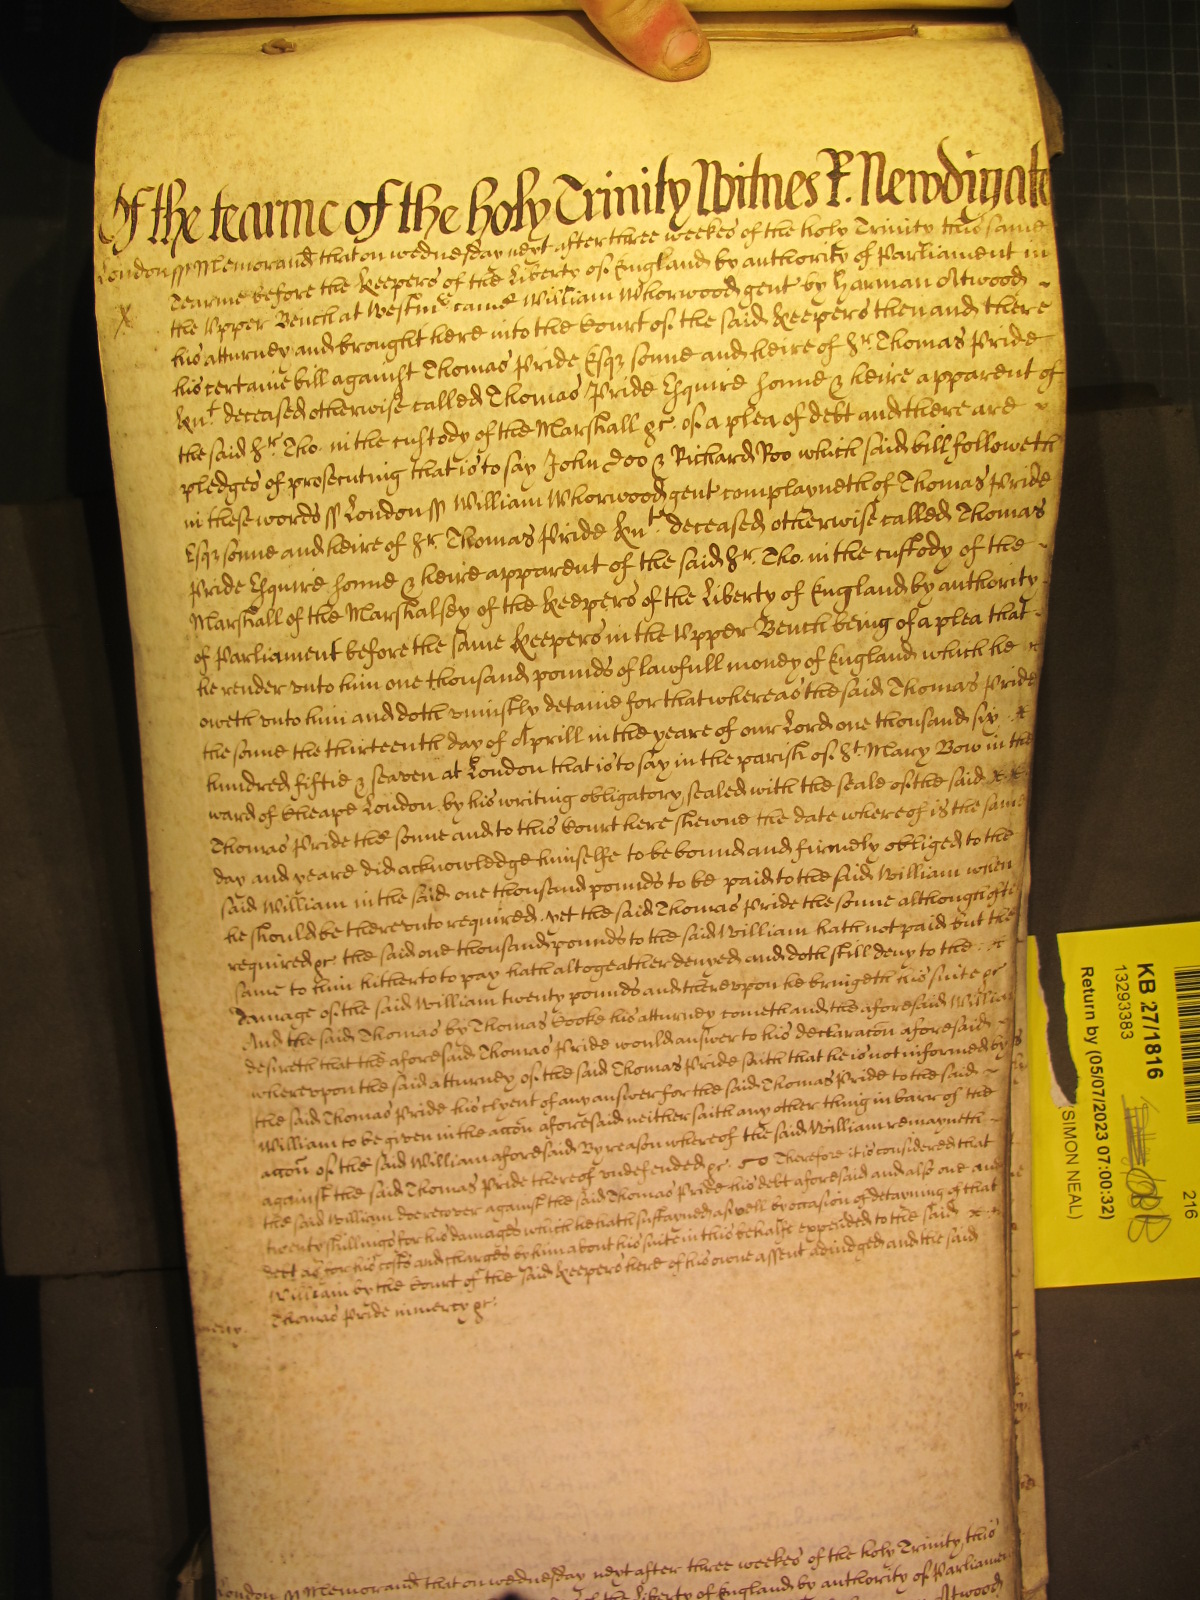 Of the tearme of the holy Trinity Witnes R. Newdigate
London ss Memorand that on wednesday next after three weekes of the holy Trinity this same
Tearme before the Keepers of the Liberty of England by authority of Parliament in
the Vpper Bench at Westmr came William Whorwood gent by Harman Atwood
his atturney and brought here into the Court of the said Keepers then and there
his certaine bill against Thomas Pride Esqr sonne and heire of Sr. Thomas Pride
Knt deceased otherwise called Thomas Pride Esquire sonne & heire apparent of
the said Sr. Tho. in the custody of the Marshall &c. of a plea of debt and there are
pledges of prosecuting that is to say John Doo & Richard Roo which said bill followeth
in these words ss London ss William Whorwood gent complayneth of Thomas Pride
Esqr sonne and heire of Sr. Thomas Pride Knt. deceased otherwise called Thomas
Pride Esquire sonne & heire apparent of the said Sr. Tho. in the custody of the
Marshall of the Marshalsey of the Keepers of the Liberty of England by authority
of Parliament before the same Keepers in the Vpper Bench being of a plea that
he render vnto him one thousand pounds of lawfull money of England which he
oweth vnto him and doth vniustly detaine for that whereas the said Thomas Pride
the sonne the thirteenth day of Aprill in the yeare of our Lord one thousand six
hundred fiftie & seaven at London that is to say in the parish of St. Mary Bow in the
ward of Cheape London by his writing obligatory sealed with the seale of the said
Thomas Pride the sonne and to this Court here shewne the date whereof is the same
day and yeare did acknowledge himselfe to be bound and firmely obliged to the
said William in the said one thousand pounds to be paid to the said William when
he should be therevnto required. yet the said Thomas Pride the sonne although often
required &c the said one thousand pounds to the said William hath not paid but the
same to him hitherto to pay hath altogeather denyed and doth still deny to the
damage of the said William twenty pounds and therevpon he bringeth this suite &c
And the said Thomas by Thomas Cooke his atturney cometh and the aforesaid William
desireth that the aforesaid Thomas Pride would answer to his declaracon aforesaid
wherevpon the said atturney of the said Thomas Pride saith that he is not informed by
the said Thomas Pride his clyent of any answer for the said Thomas Pride to the said
William to be given in the accon aforesaid neither saith any other thing in barr of the
accon of the said William aforesaid By reason whereof the said William remayneth
against the said Thomas Pride thereof vndefended &c. Therefore it is considered that
the said William doe recover against the said Thomas Pride his debt aforesaid and also one and
twenty shillings for his damages which he hath sustayned aswell by occasion of detayning of that
debt as for his costs and charges by him about his suite in this behalfe expended to the said
William by the Court of the said Keepers here of his owne assent adiudged and the said
Thomas Pride in mercy &c.
mercy.
London ss Memorand that on wednesday next after three weekes of the holy Trinity this
of the Liberty of England by authority of Parliament
Atwood
KB 27/1816
13293383
Return by (05/07/2023 07:00:32)
(SIMON NEAL)
216